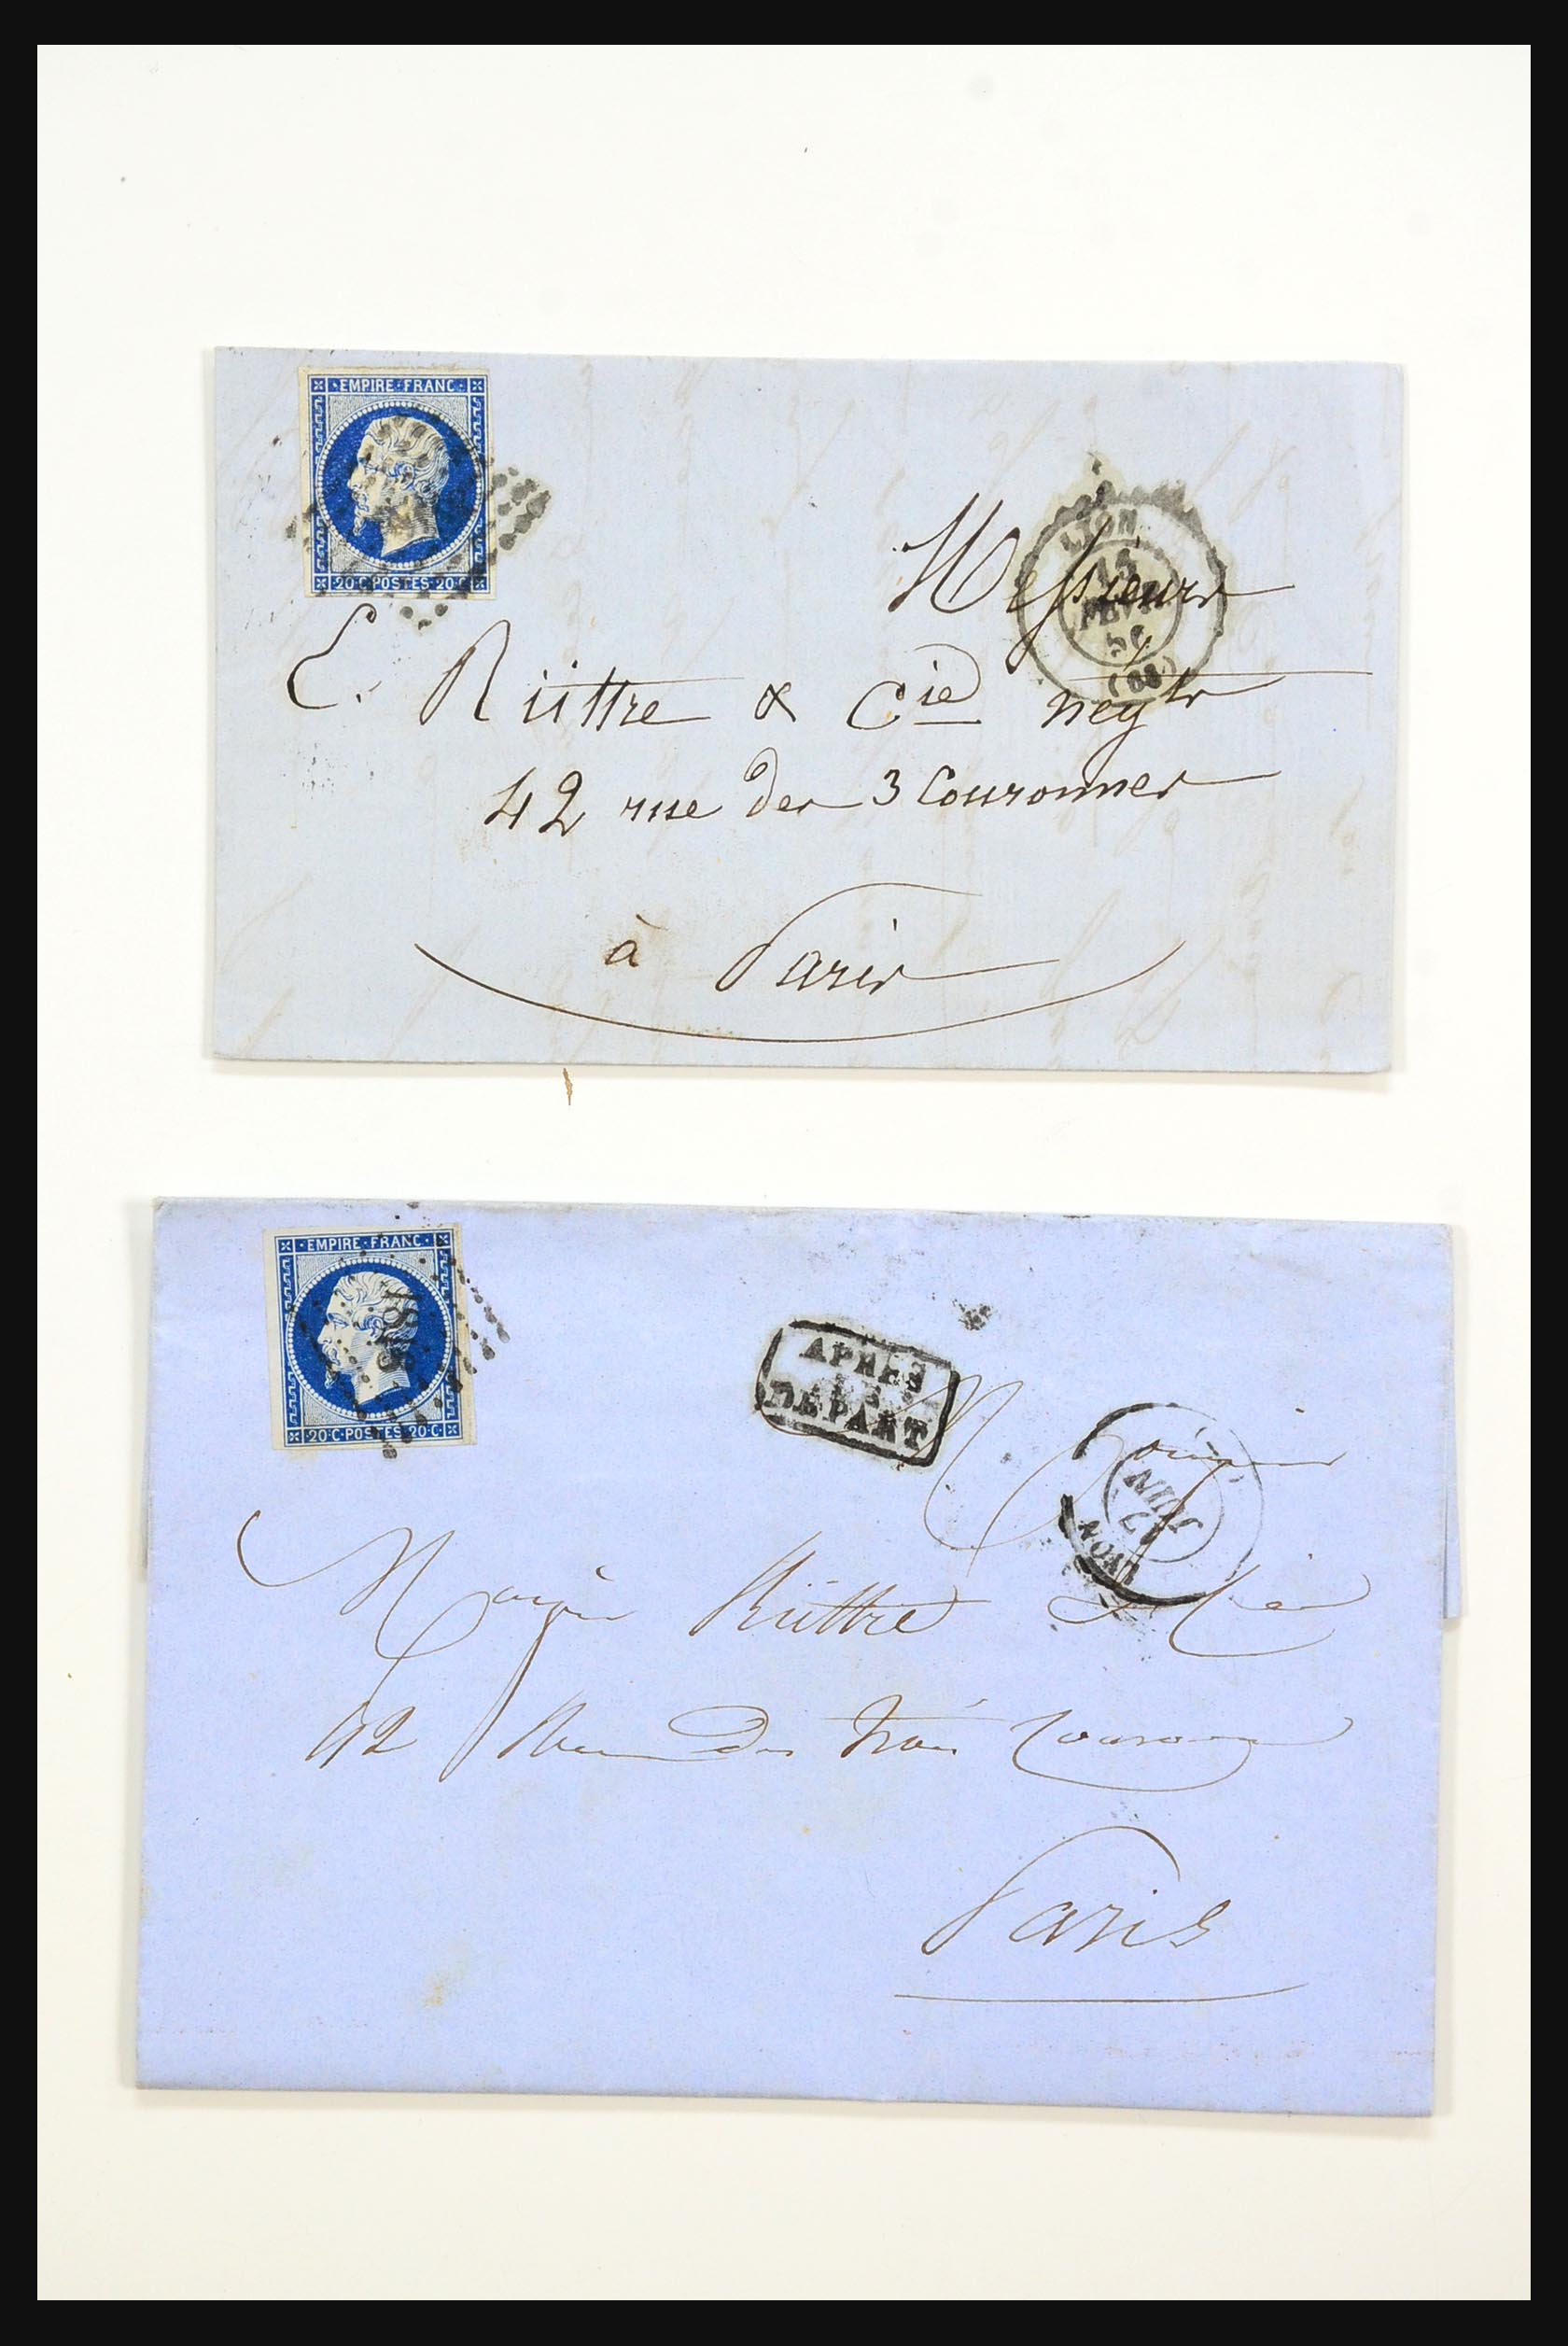 EMPIRE·FRANC·
20·C·POSTES·20·C·
LYON
15
FEVR
56
(68)
Messieurs
E. Rüttre & Cie négts
42 rue des 3 Couronnes
à Paris
EMPIRE·FRANC·
20·C·POSTES·20·C·
1818
APRÈS
LE
DÉPART
JUIN
LYON
Rüttre & Cie
42 Rue des trois Couronnes
Paris